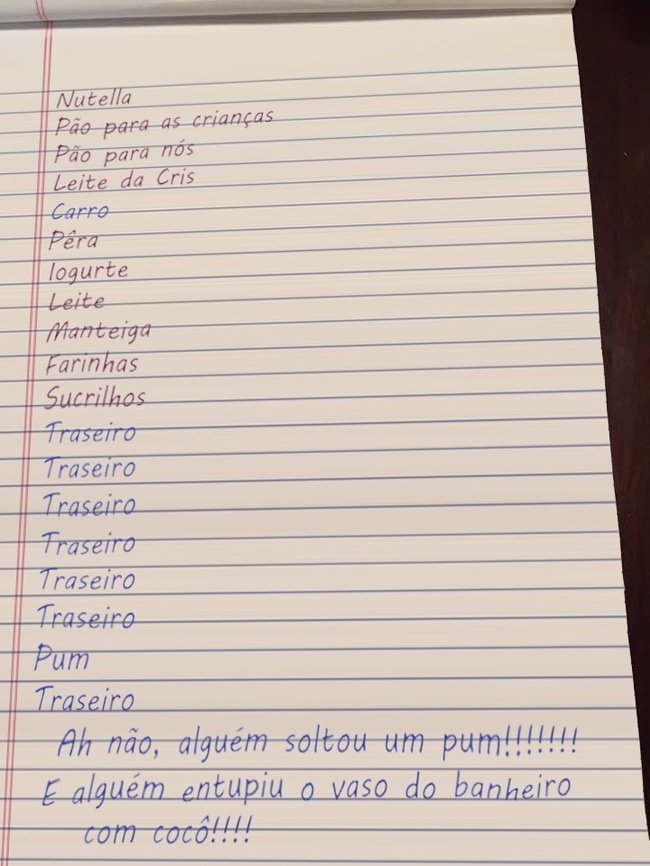 Nutella
Pão para as crianças
Pão para nós
Leite da Cris
Carro
Pêra
Iogurte
Leite
Manteiga
Farinhas
Sucrilhos
Traseiro
Traseiro
Traseiro
Traseiro
Traseiro
Traseiro
Pum
Traseiro
Ah não, alguém soltou um pum!!!!!!!
E alguém entupiu o vaso do banheiro
com cocô!!!!